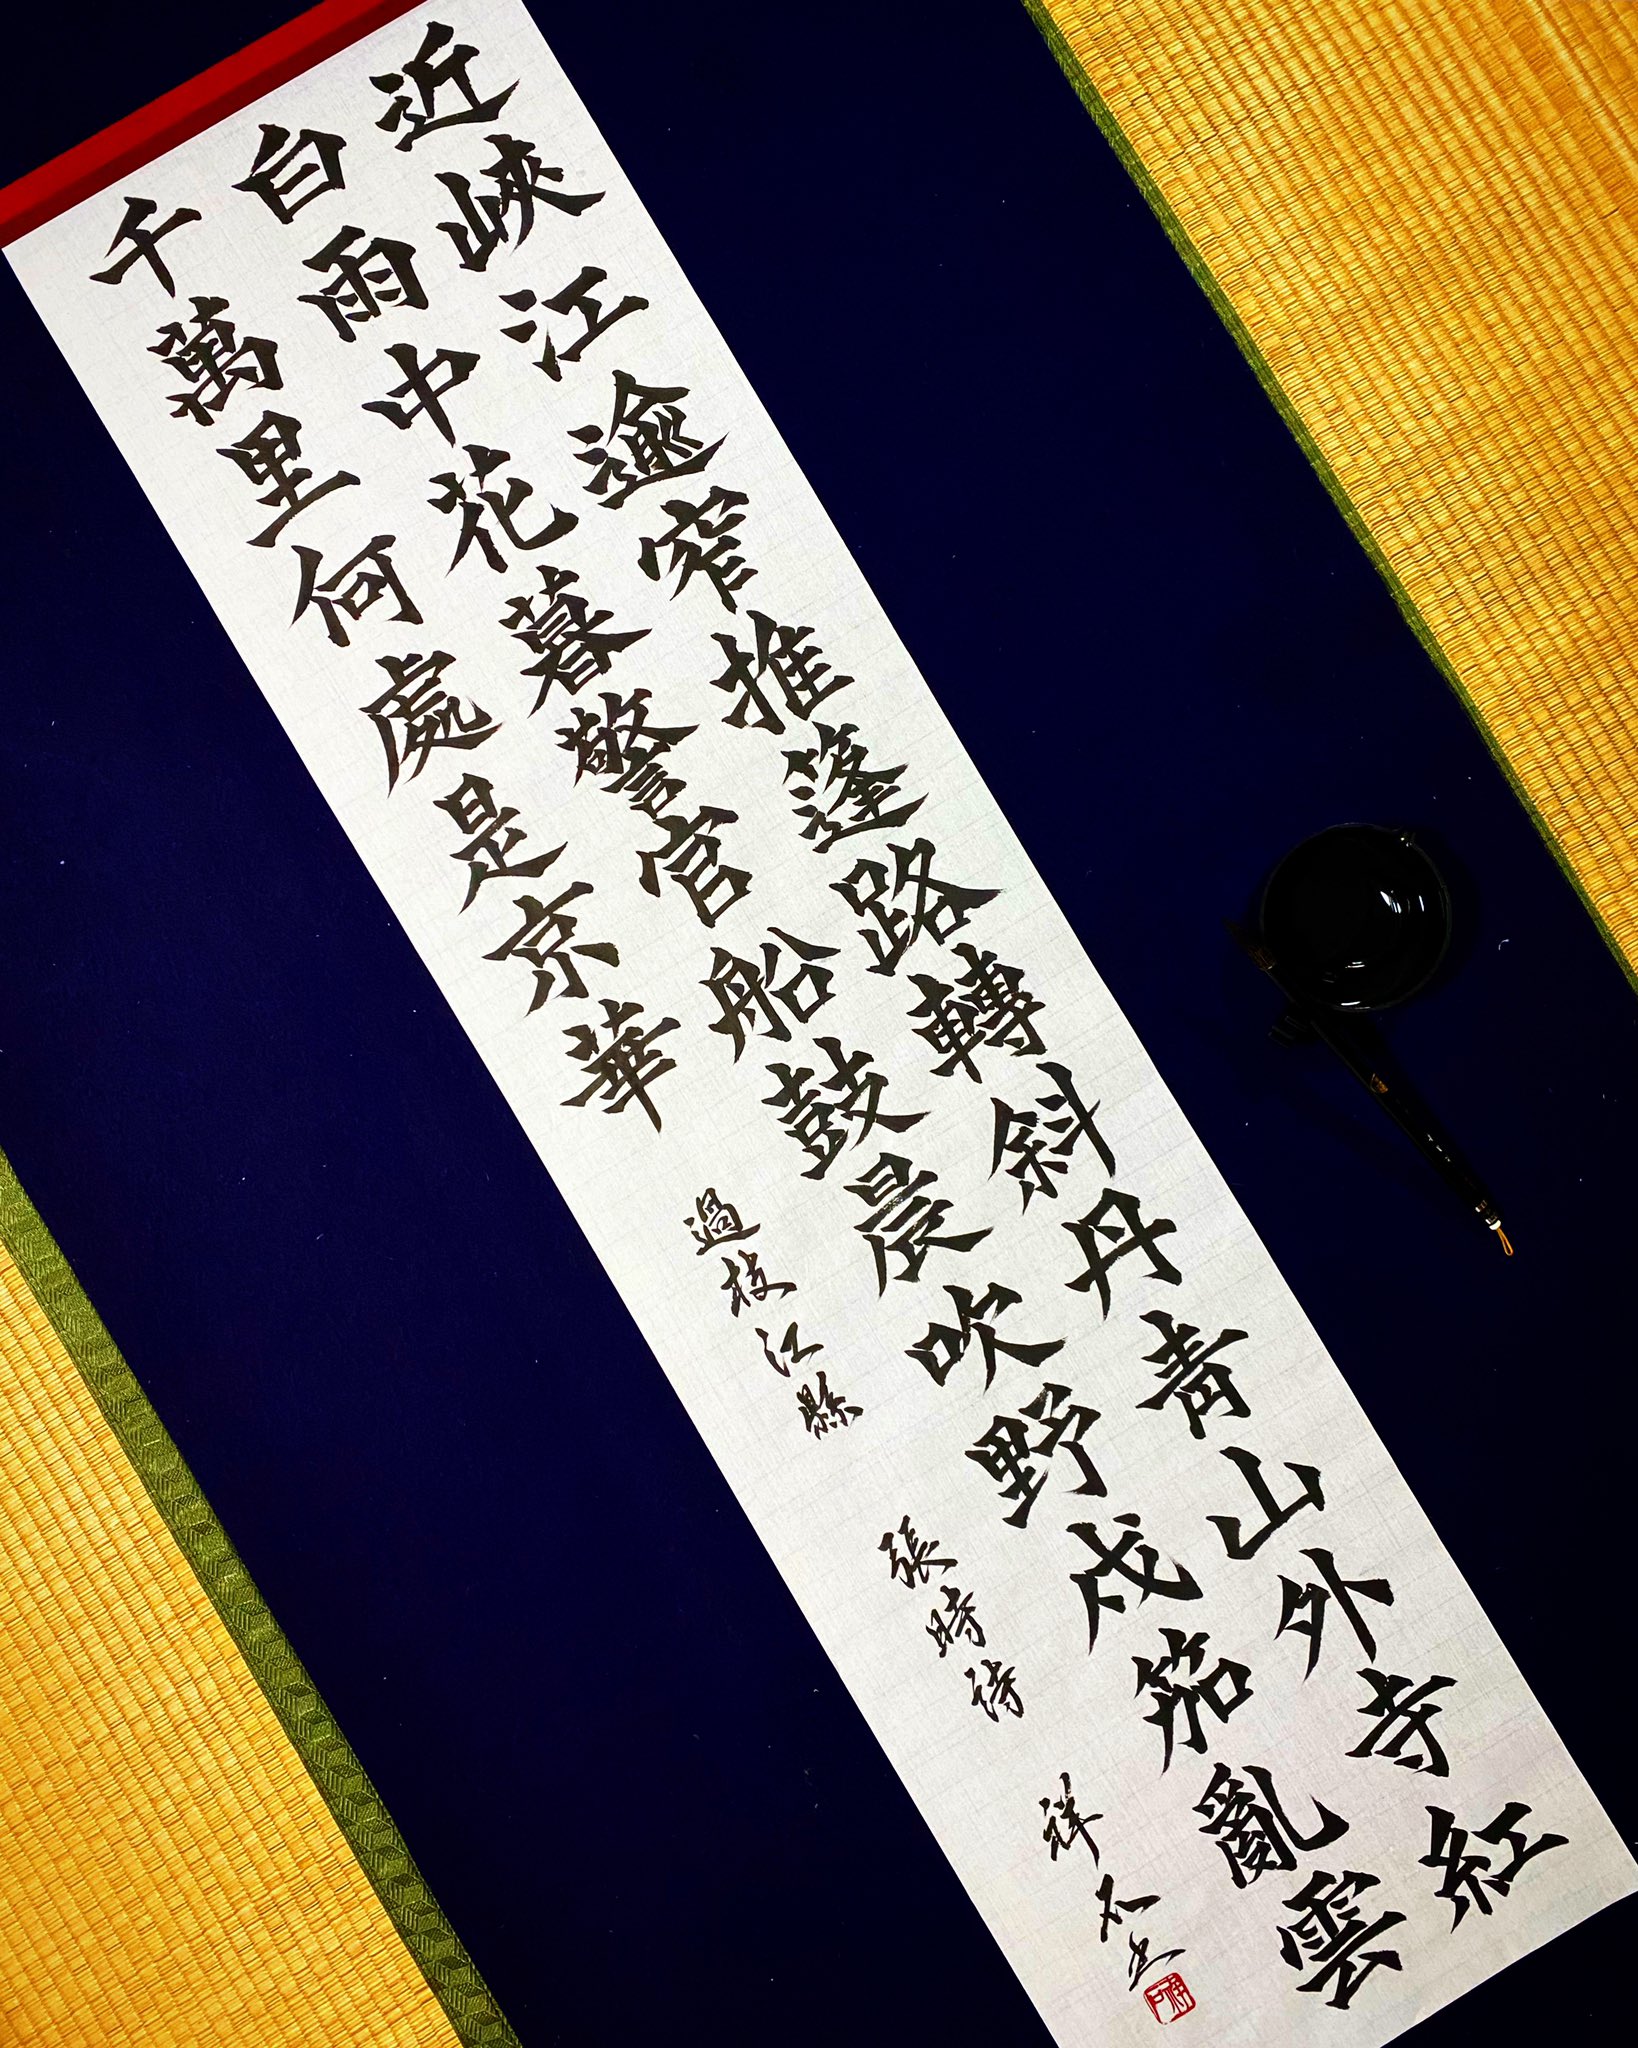 近峽江逾窄推篷路轉斜丹青山外寺紅
白雨中花暮警官船鼓晨吹野戍笳亂雲
千萬里何處是京華
過枝江縣 張時詩 祥石書